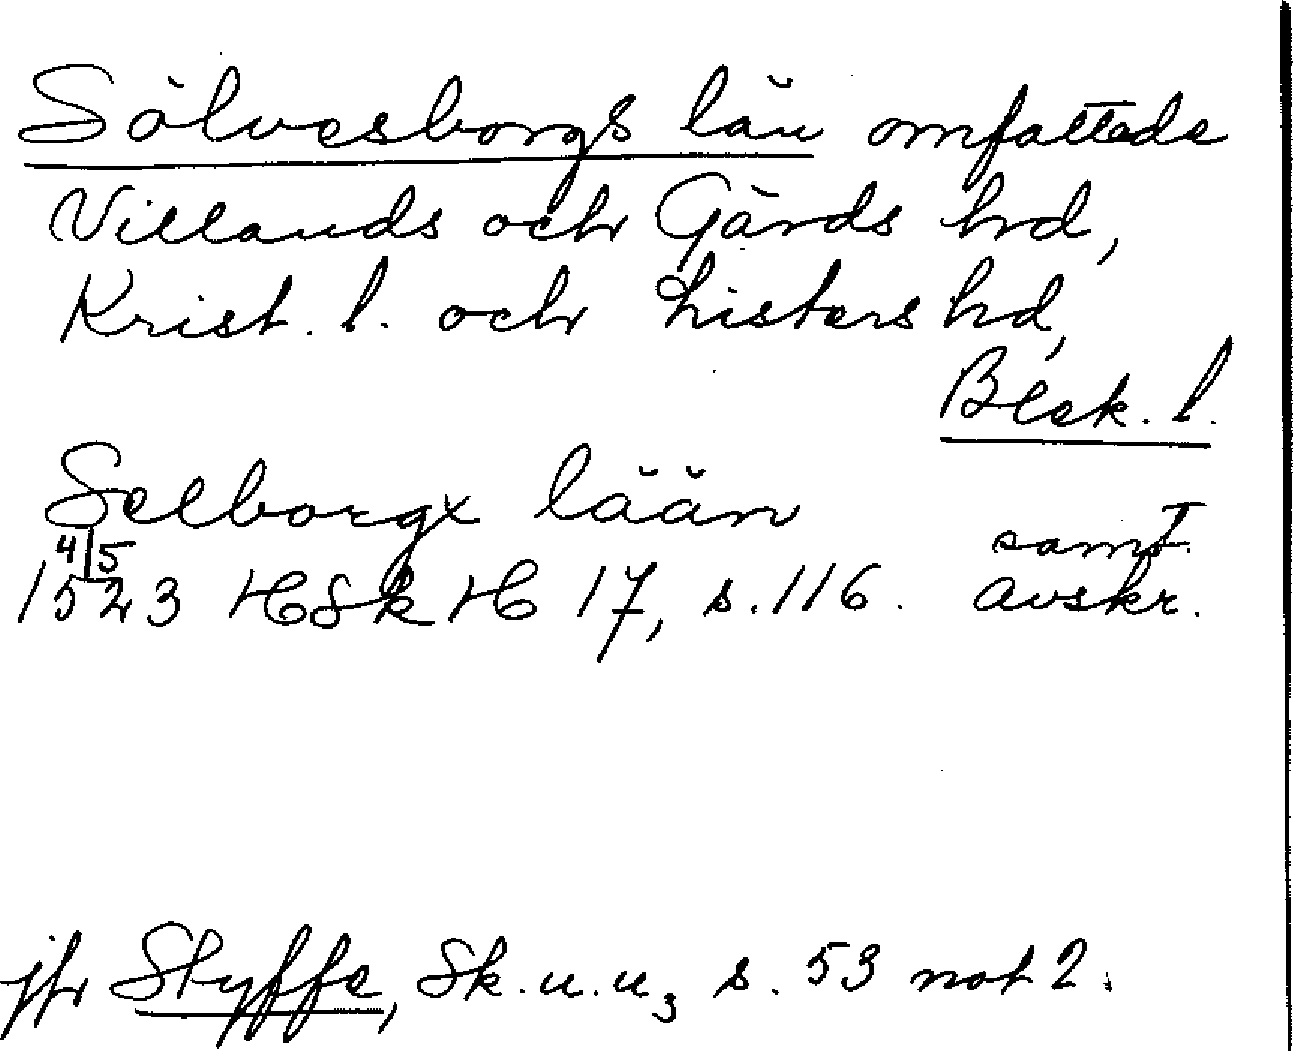 Sölvesborgs län omfattade
Villands och Gärds hrd,
Krist. l. och Listers hrd,
Blek. l.
Selborgx lään
4/5 samt.
1523 HSkH 17, s. 116. avskr.
jfr Styffe, Sk. u. u, s. 53 not 2.